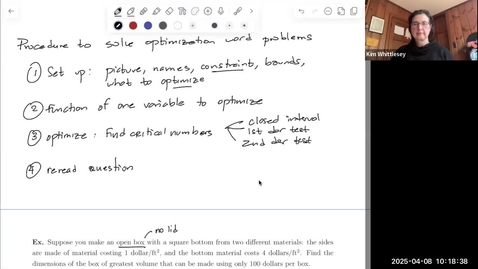 Procedure to solve optimization word problems
① Set up: picture, names, constraint, bounds,
what to optimize
② function of one variable to optimize
③ optimize: find critical numbers
closed interval
1st der test
2nd der test
④ reread question
no lid
Ex. Suppose you make an open box with a square bottom from two different materials: the sides
are made of material costing 1 dollar/ft², and the bottom material costs 4 dollars/ft². Find the
dimensions of the box of greatest volume that can be made using only 100 dollars per box.
Kim Whittlesey
2025-04-08 10:18:38